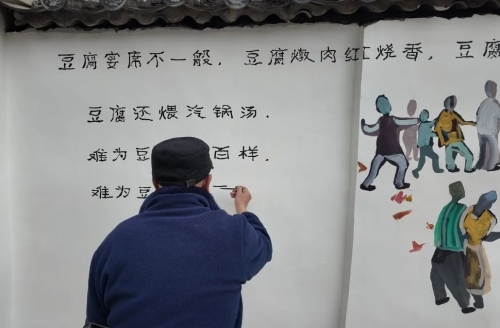 豆腐宴席不一般，豆腐燉肉红烧香，豆腐
豆腐还煨汽锅汤．
难为豆 百样．
难为豆